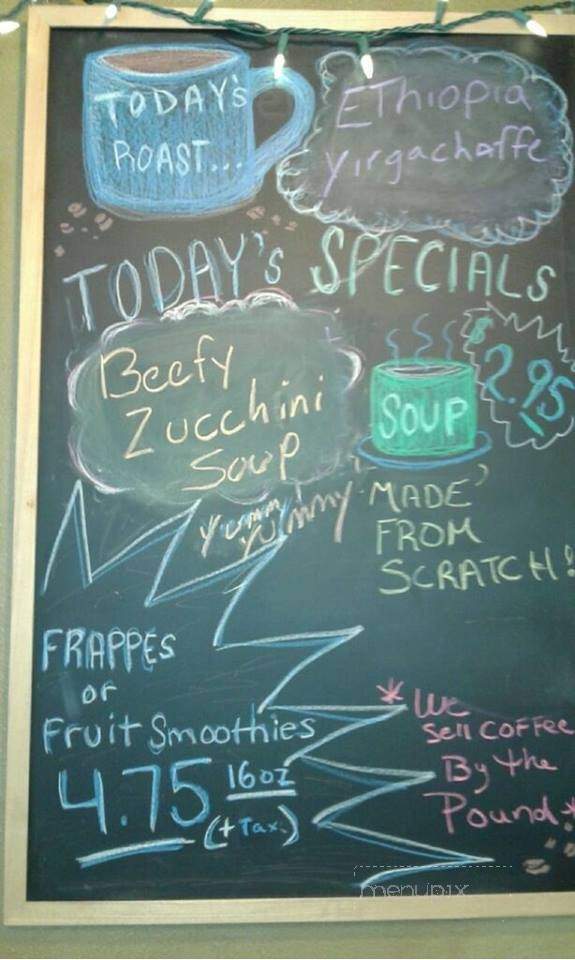 TODAY's
ROAST...
EThiopia
Yirgachaffe
TODAY's SPECIALs
Beefy
Zucchini
Soup
$2.95
SOUP
yummy
yummy
MADE
FROM
SCRATCH!
FRAPPES
or
Fruit Smoothies
4.75 16oz
(+ Tax.)
* We
Sell COFFEE
By the
Pound *
menupix